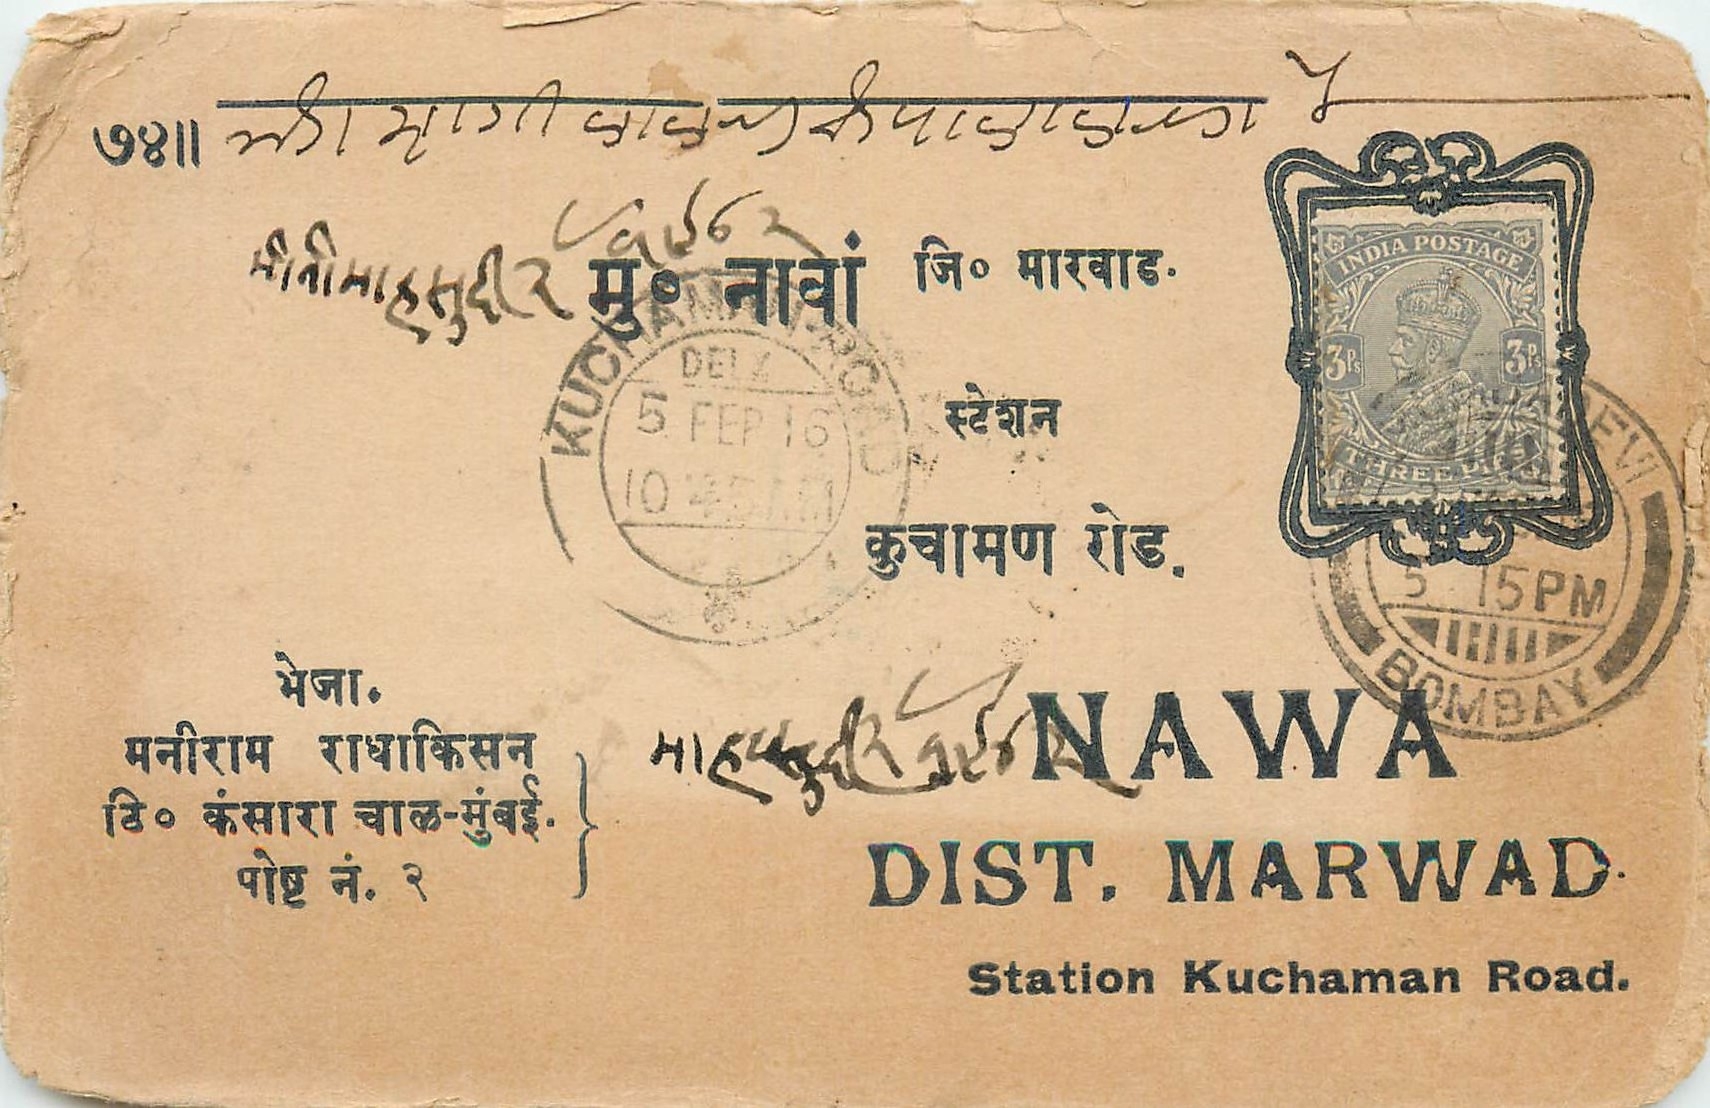 ७४॥
मु० नावां जि० मारवाड.
स्टेशन
कुचामण रोड.
INDIA POSTAGE
3Ps 3Ps
THREE PIES
KUCHAMAN-ROAD
DELY
5 FEB 16
10 45 AM
5 15 PM
BOMBAY
भेजा.
मनीराम राधाकिसन
ठि० कंसारा चाळ-मुंबई.
पोष्ट नं. २
माह सुदी २ १९७२
NAWA
DIST. MARWAD.
Station Kuchaman Road.